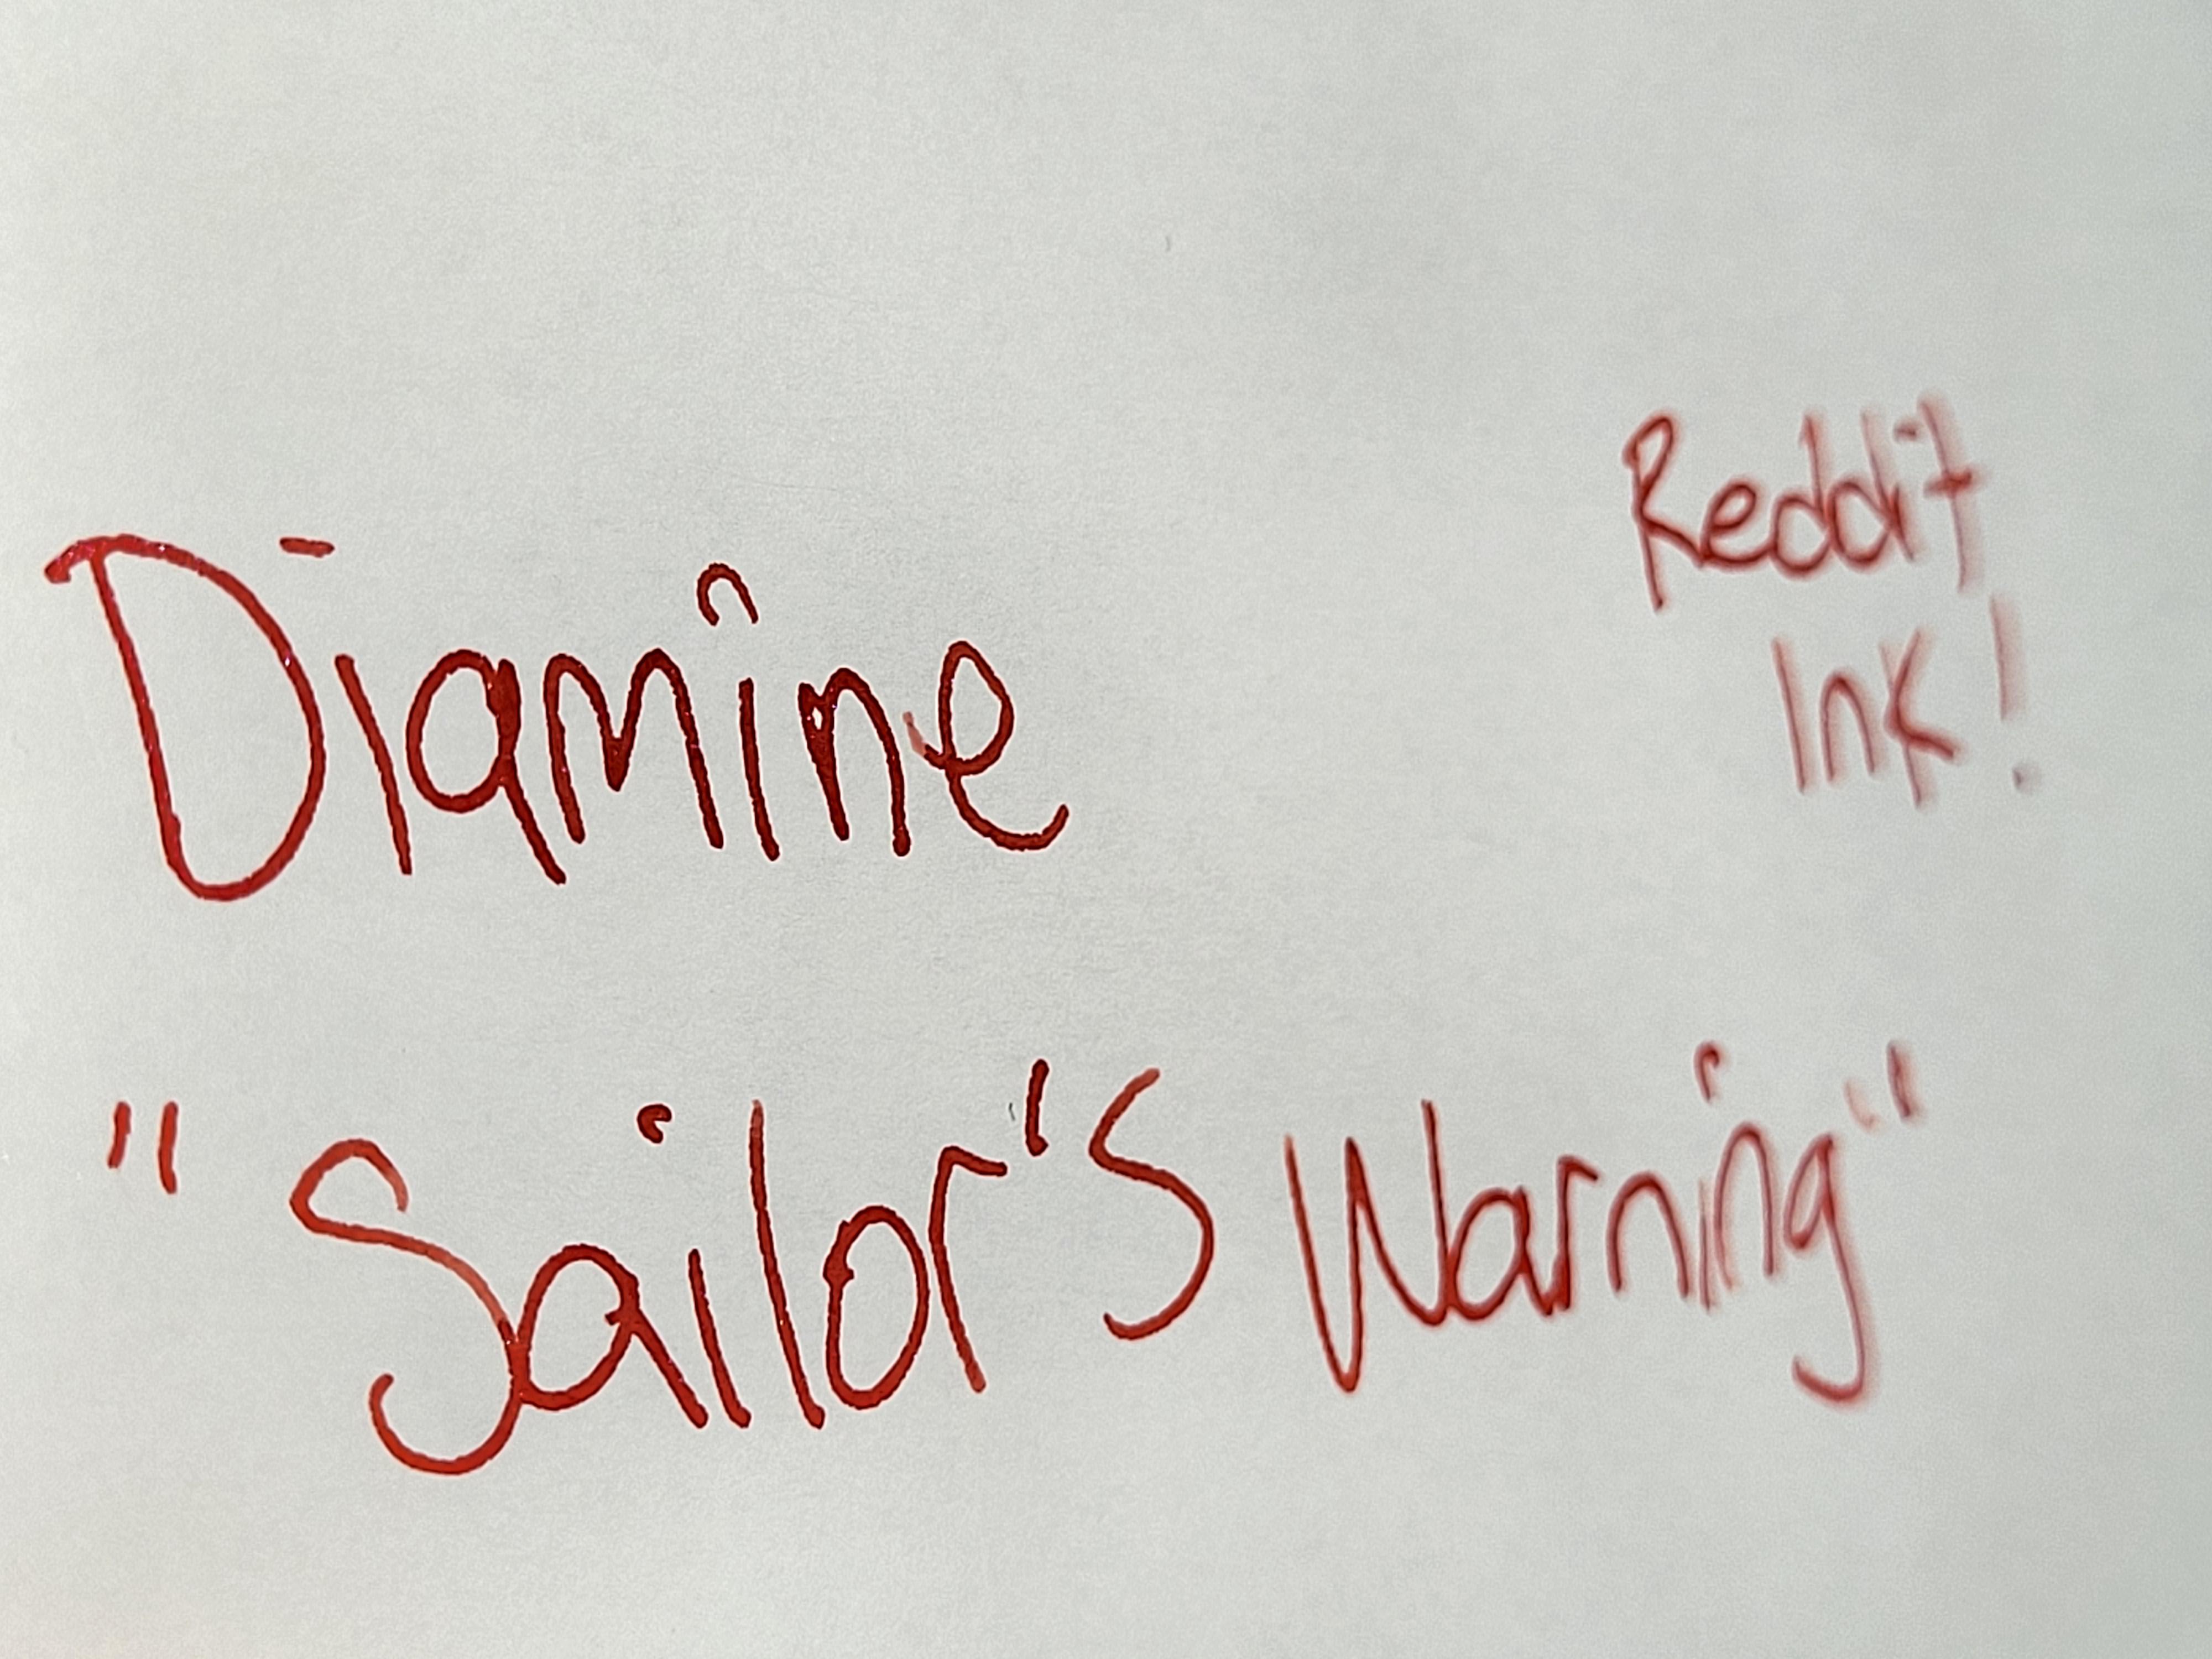 Reddit
Ink!
Diamine
"Sailor's Warning"